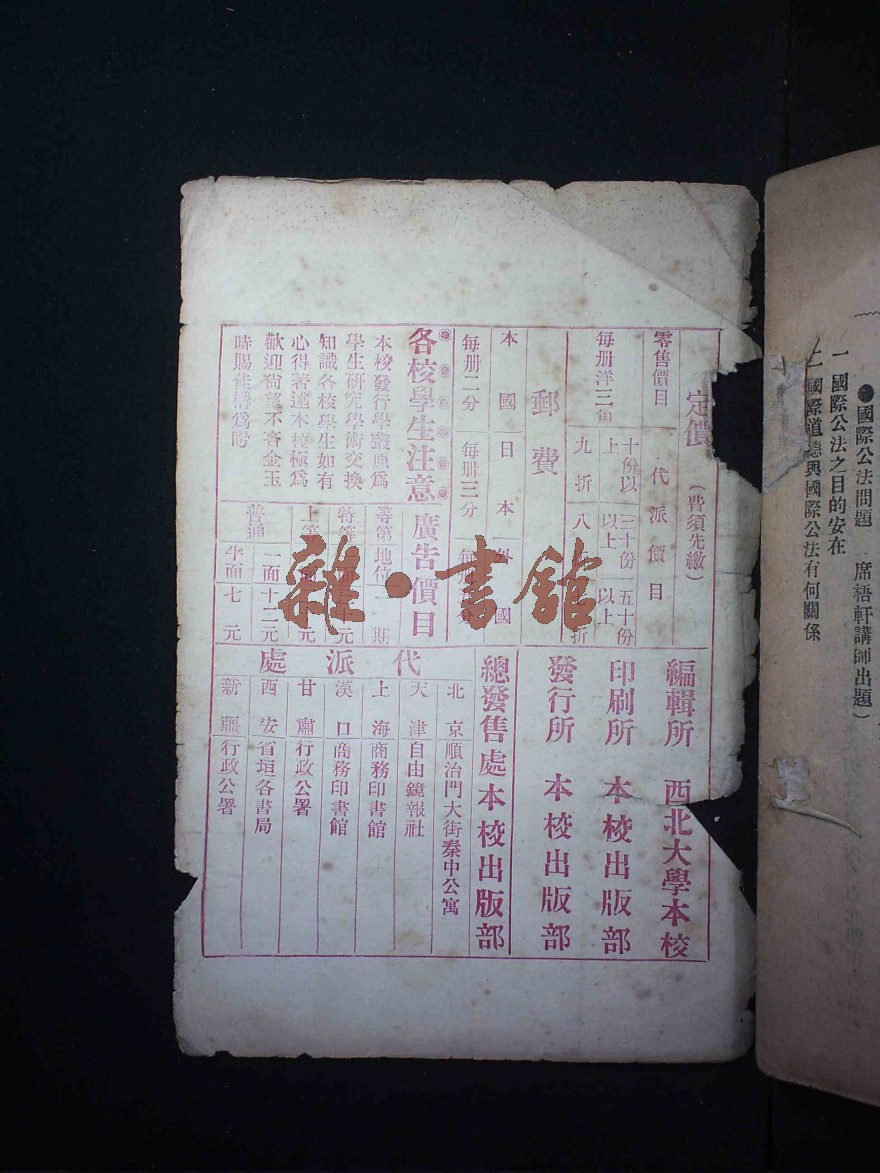 ●國際公法問題
席梧軒講師出題）
一 國際公法之目的安在
二 國際道德與國際公法有何關係
定價
（費須先繳）
零售價目
代派價目
每册洋三角
十份以上
三十份以上
五十份以上
九折
八
折
郵費
本國
日本
外國
每册二分
每册三分
每册
各校學生注意
本校發行學叢原爲
學生研究學術交換
知識各校學生如有
心得著述本校極爲
歡迎尚望不吝金玉
時賜佳構爲盼
廣告價目
等第
地位
一期
特等
元
上等
元
普通
一面
十二元
半面
七元
編輯所 西北大學本校
印刷所 本校出版部
發行所 本校出版部
總發售處 本校出版部
代派處
北京 順治門大街秦中公寓
天津 自由鏡報社
上海 商務印書館
漢口 商務印書館
甘肅 行政公署
西安 省垣各書局
新疆 行政公署
雜·書館